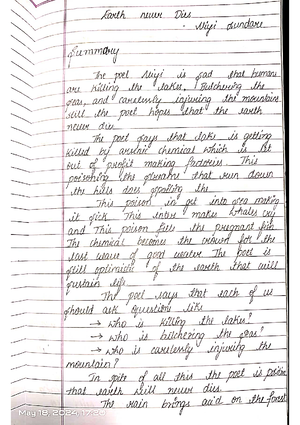 Earth never Dies
- Niyi Sundare
Summary
The poet Niyi is sad that humans
are killing the lakes, Butchering the
seas, and carelessly injuring the mountains
still the poet hopes that the earth
never die.
The poet says that lake is getting
killed by arsenic chemical which is let
out of profit making factories. This
poisoning the streams that run down
the hills does spoiling the
This poison in get into sea making
it sick. This intire makes whales cry
and This poison fills the pregnant fish
The chemical become the reward for the
last wave of good water. The poet is
still optimistic of the earth that will
sustain life
The poet says that each of us
should ask question like
→ who is killing the lakes?
→ who is butchering the seas?
→ who is carelessly injuring the
mountain?
In spite of all this the poet is positive
that earth will never dies.
The rain brings acid on the forest
May 18, 2024, 17:26